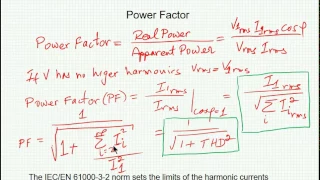 Power Factor
Power Factor = Real Power / Apparent Power = V1rms I1rms cosφ / Vrms Irms
If V has no higer harmonics Vrms = V1rms
Power Factor (PF) = I1rms / Irms | cosφ=1 = I1rms / √(Σ Ii²rms)
PF = 1 / √(1 + Σ Ii² / I1²) = 1 / √(1 + THD²)
The IEC/EN 61000-3-2 norm sets the limits of the harmonic currents